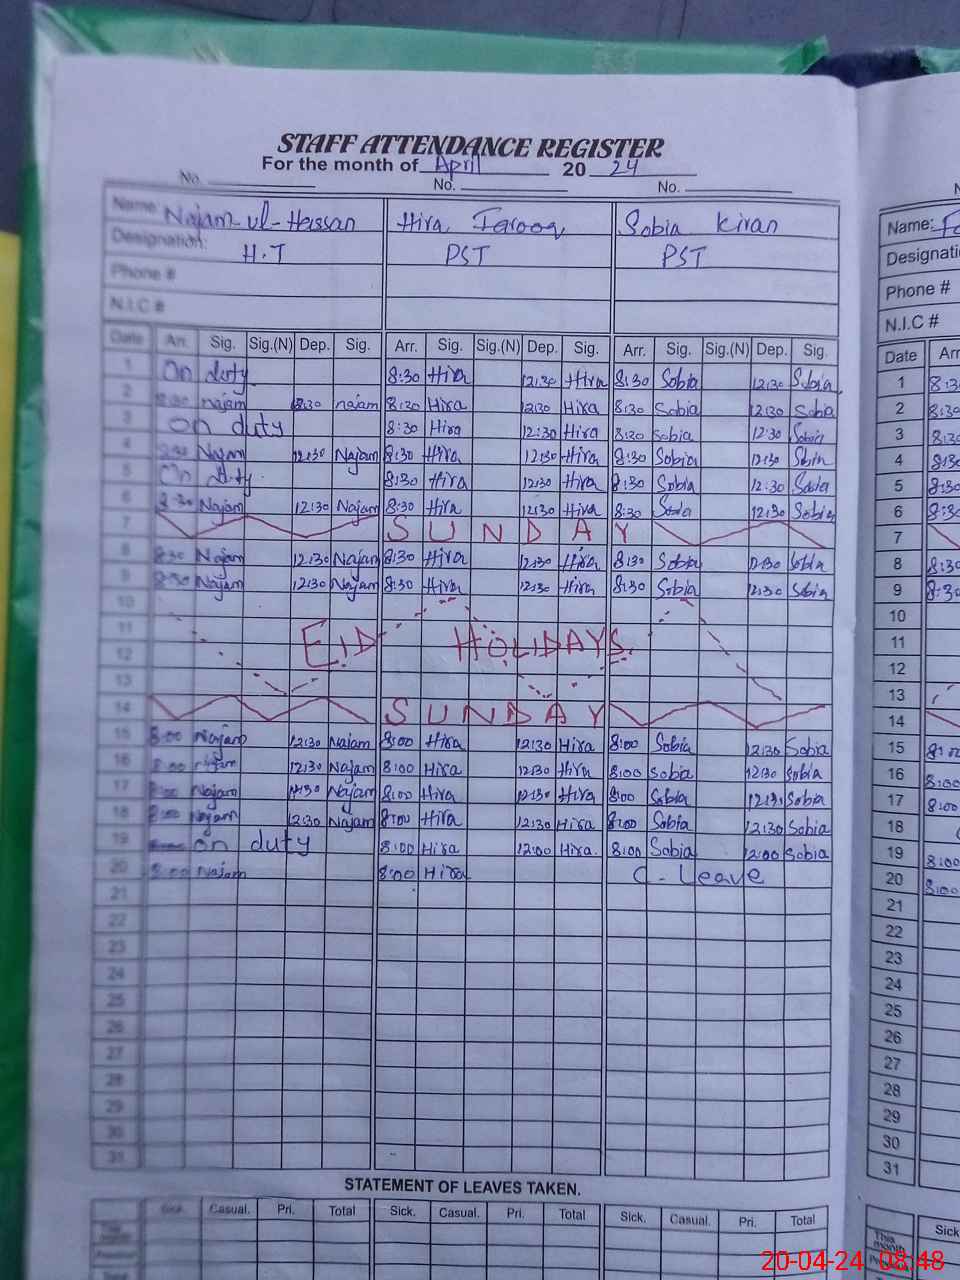 STAFF ATTENDANCE REGISTER
For the month of April 20 24
No. No. No.
Name: Najam-ul-Hassan Hira Farooq Sobia Kiran Name:
Designation: H.T PST PST
Phone # Phone #
N.I.C # N.I.C #
Date Arr. Sig. Sig.(N) Dep. Sig. Arr. Sig. Sig.(N) Dep. Sig. Arr. Sig. Sig.(N) Dep. Sig. Date
1 On duty 8:30 Hira 12:30 Hira 8:30 Sobia 12:30 Sobia 1
2 8:30 najam 12:30 najam 8:30 Hira 12:30 Hira 8:30 Sobia 12:30 Sobia 2
3 On duty 8:30 Hira 12:30 Hira 8:30 Sobia 12:30 Sobia 3
4 8:30 Najam 12:30 Najam 8:30 Hira 12:30 Hira 8:30 Sobia 12:30 4
5 On duty 8:30 Hira 12:30 Hira 8:30 Sobia 12:30 Sobia 5
6 8:30 Najam 12:30 Najam 8:30 Hira 12:30 Hira 8:30 Sobia 12:30 Sobia 6
7 SUNDAY 7
8 8:30 Najam 12:30 Najam 8:30 Hira 12:30 Hira 8:30 Sobia 12:30 Sobia 8
9 8:30 Najam 12:30 Najam 8:30 Hira 12:30 Hira 8:30 Sobia 12:30 Sobia 9
10 10
11 EID HOLIDAYS 11
12 12
13 13
14 SUNDAY 14
15 8:00 Najam 12:30 Najam 8:00 Hira 12:30 Hira 8:00 Sobia 12:30 Sobia 15
16 8:00 najam 12:30 Najam 8:00 Hira 12:30 Hira 8:00 Sobia 12:30 Sobia 16
17 8:00 Najam 12:30 Najam 8:00 Hira 12:30 Hira 8:00 Sobia 12:30 Sobia 17
18 8:00 Najam 12:30 Najam 8:00 Hira 12:30 Hira 8:00 Sobia 12:30 Sobia 18
19 on duty 8:00 Hira 12:00 Hira 8:00 Sobia 12:00 Sobia 19
20 8:00 Najam 8:00 Hira C-Leave 20
21 21
22 22
23 23
24 24
25 25
26 26
27 27
28 28
29 29
30 30
31 31
STATEMENT OF LEAVES TAKEN.
Sick. Casual. Pri. Total Sick. Casual. Pri. Total Sick. Casual. Pri. Total
This month This month
20-04-24 08:48